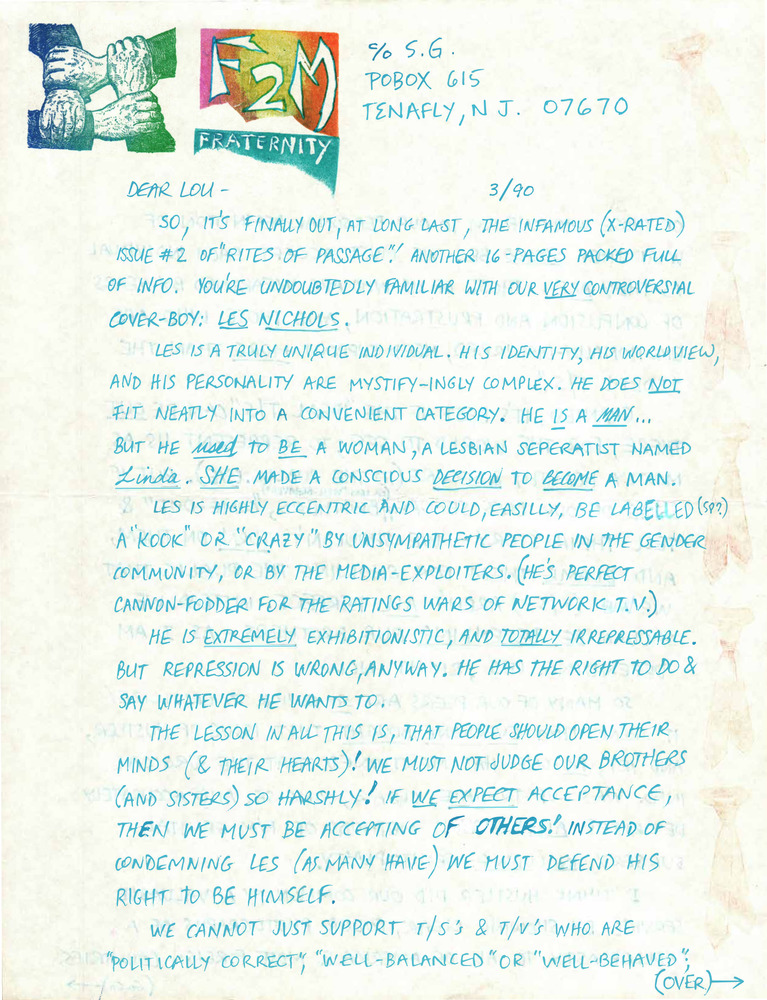 F2M
FRATERNITY
℅ S.G.
PO BOX 615
TENAFLY, N J. 07670
DEAR LOU - 3/90
SO, IT'S FINALLY OUT, AT LONG LAST, THE INFAMOUS (X-RATED)
ISSUE #2 OF "RITES OF PASSAGE"! ANOTHER 16-PAGES PACKED FULL
OF INFO. YOU'RE UNDOUBTEDLY FAMILIAR WITH OUR VERY CONTROVERSIAL
COVER-BOY: LES NICHOLS.
LES IS A TRULY UNIQUE INDIVIDUAL. HIS IDENTITY, HIS WORLDVIEW,
AND HIS PERSONALITY ARE MYSTIFY-INGLY COMPLEX. HE DOES NOT
FIT NEATLY INTO A CONVENIENT CATEGORY. HE IS A MAN...
BUT HE used TO BE A WOMAN, A LESBIAN SEPERATIST NAMED
Linda. SHE MADE A CONSCIOUS DECISION TO BECOME A MAN.
LES IS HIGHLY ECCENTRIC AND COULD, EASILLY, BE LABELLED (SP?)
A "KOOK" OR "CRAZY" BY UNSYMPATHETIC PEOPLE IN THE GENDER
COMMUNITY, OR BY THE MEDIA-EXPLOITERS. (HE'S PERFECT
CANNON-FODDER FOR THE RATINGS WARS OF NETWORK T.V.)
HE IS EXTREMELY EXHIBITIONISTIC, AND TOTALLY IRREPRESSABLE.
BUT REPRESSION IS WRONG, ANYWAY. HE HAS THE RIGHT TO DO &
SAY WHATEVER HE WANTS TO.
THE LESSON IN ALL THIS IS, THAT PEOPLE SHOULD OPEN THEIR
MINDS (& THEIR HEARTS)! WE MUST NOT JUDGE OUR BROTHERS
(AND SISTERS) SO HARSHLY! IF WE EXPECT ACCEPTANCE,
THEN WE MUST BE ACCEPTING OF OTHERS! INSTEAD OF
CONDEMNING LES (AS MANY HAVE) WE MUST DEFEND HIS
RIGHT TO BE HIMSELF.
WE CANNOT JUST SUPPORT T/S'S & T/V'S WHO ARE
"POLITICALLY CORRECT", "WELL-BALANCED" OR "WELL-BEHAVED";
(OVER)→